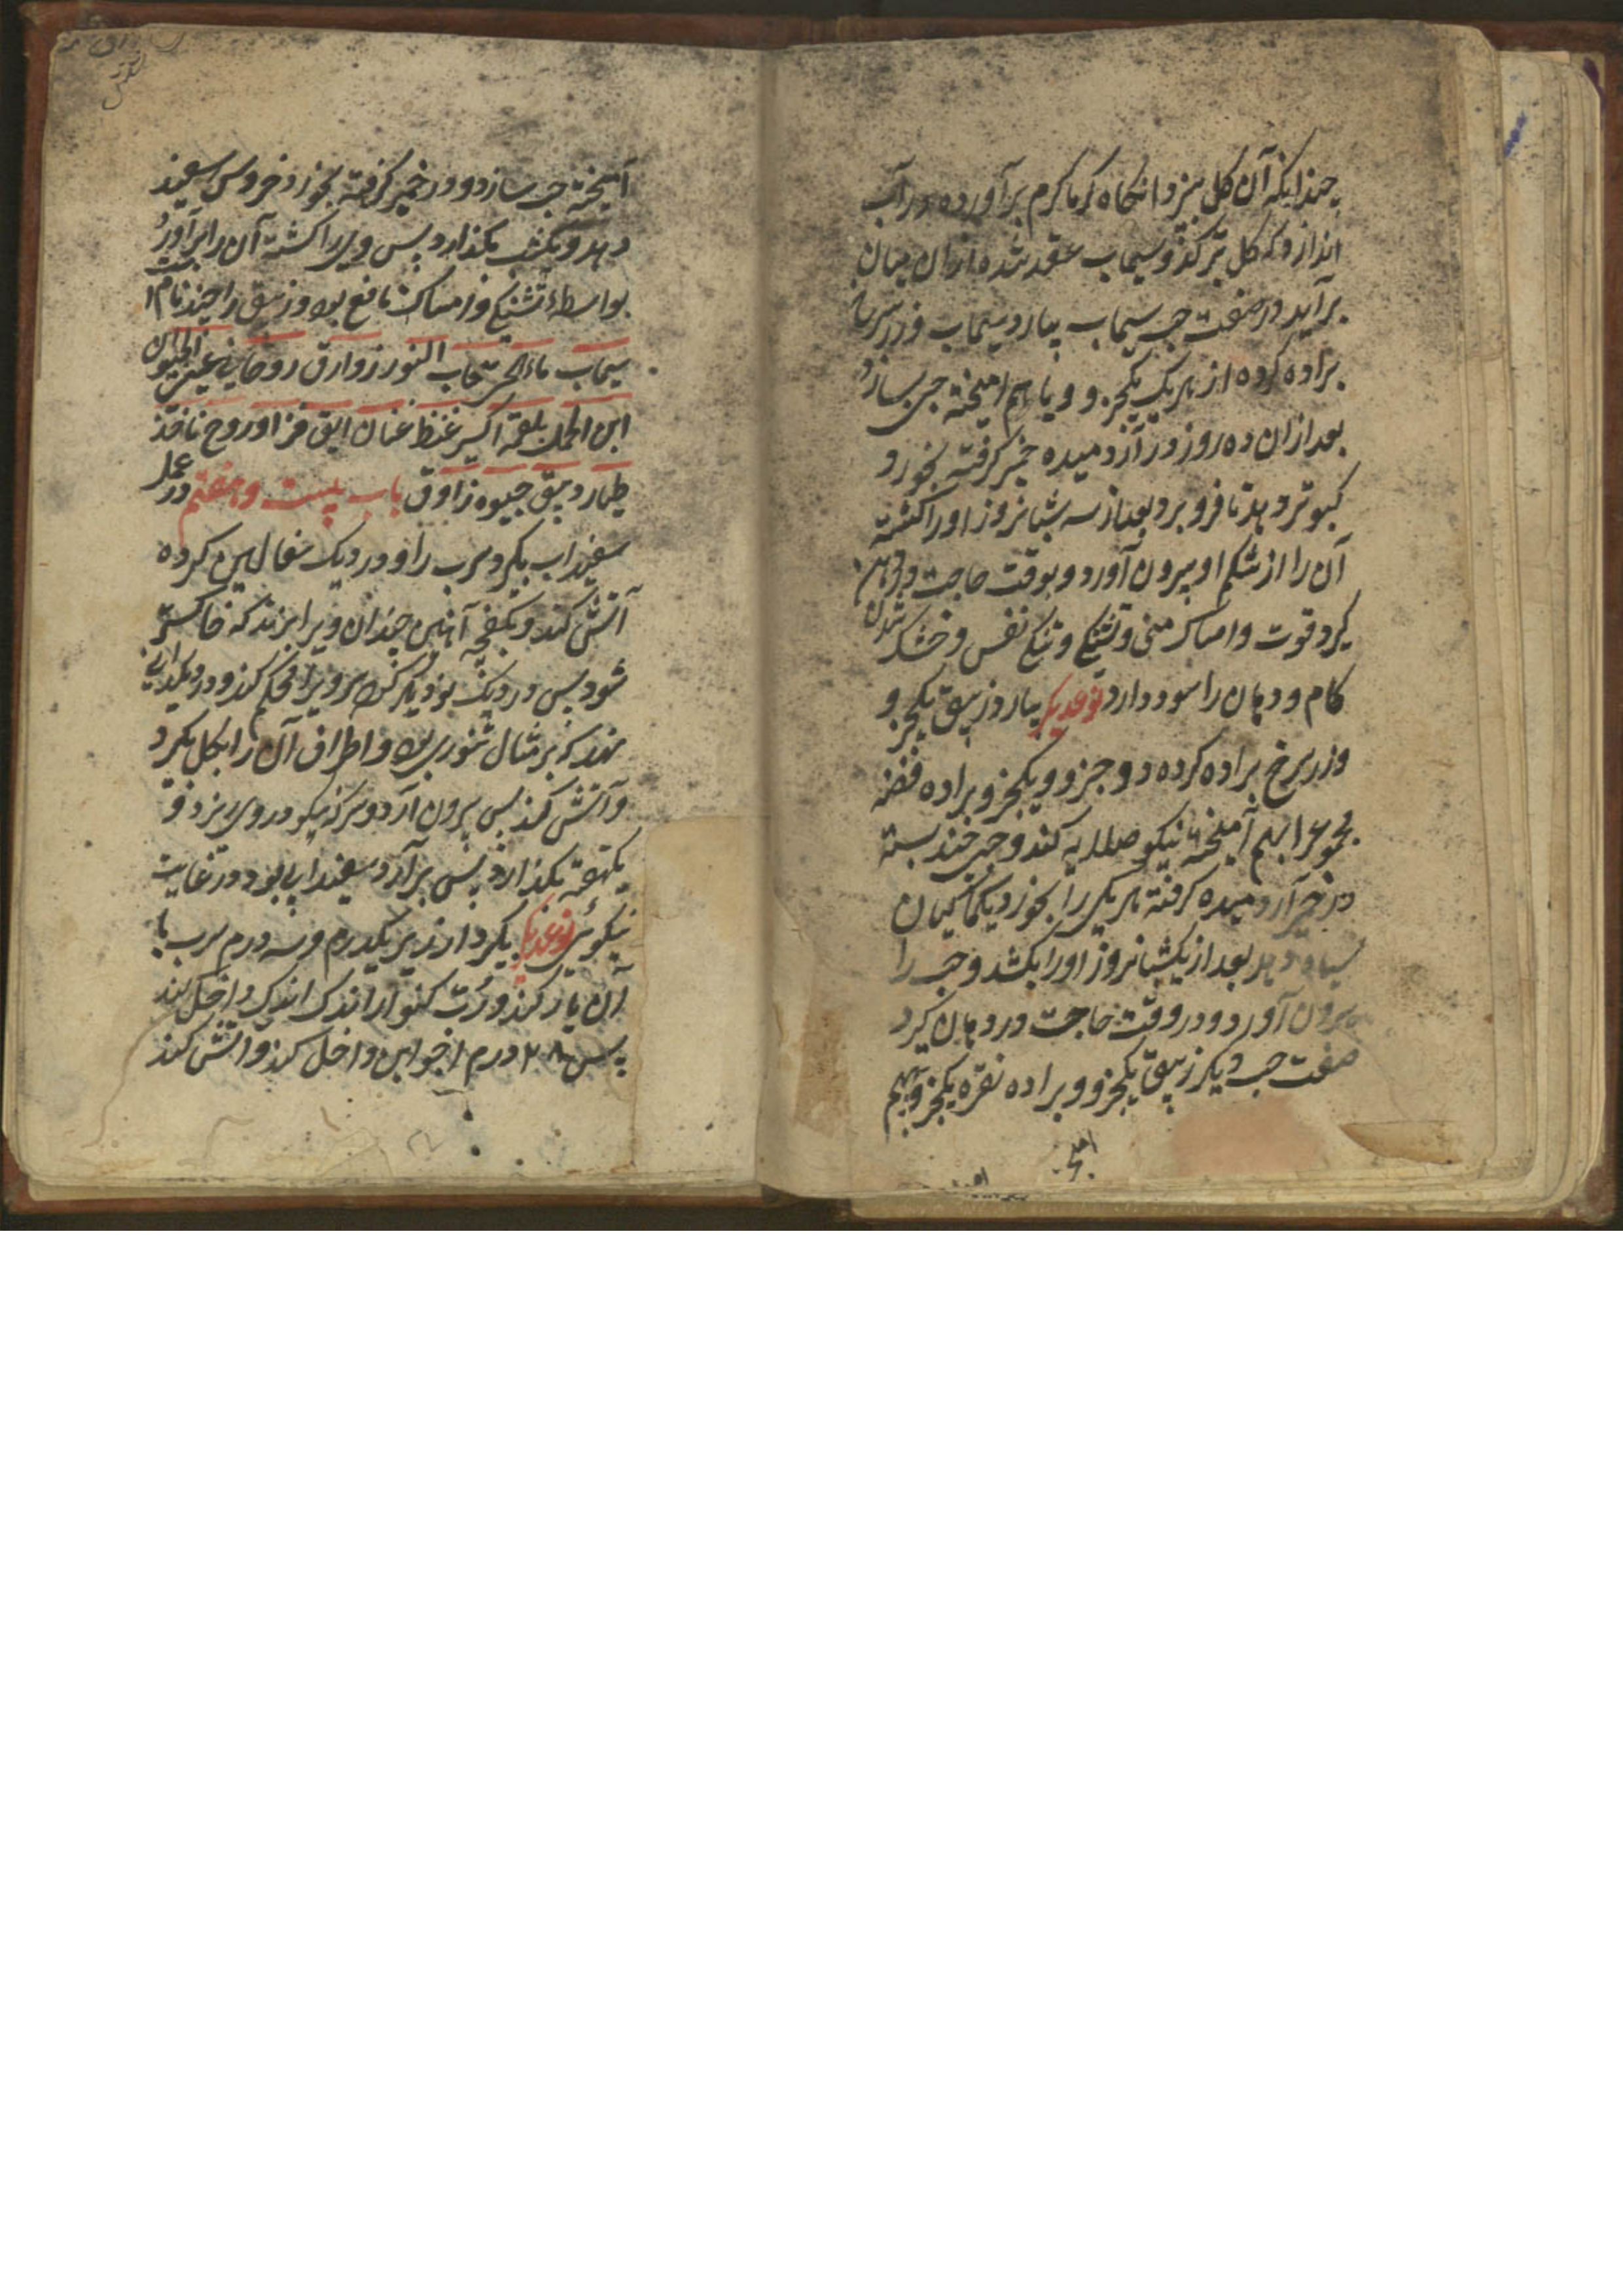 چندانکه آن کل بپزد انکاه کرما کرم برآورده در آب
اندازد که کل ترکند و سیماب عقد شده از ان میان
برآید در صفت حب سیماب بیارد سیماب و زر سرخ
براده کرده از هر یک یکجزو و با هم امیخته حب بسازد
بعد ازان ده روز در آرد میده خمیر کرفته بخورد
کبوتر دهد تا فرو برد بعد از سه شبانروز اورا کشته
آن را از شکم او بیرون آورد و بوقت حاجت در دهن
کیرد قوت و امساک منی و تشنکی و تنکی نفس و خشک شدن
کام و دهان را سود دارد نوعدیکر بیارد زیبق یکجزو
و زر سرخ براده کرده دو جزو و یکجزو براده فضه
مجموع را بهم آمیخته نیکو صلایه کند و حب چند بسته
در خمیر آرد میده کرفته هر یکی را بخورد یک ماکیان
سیاه دهد بعد از یکشبانروز اورا بکشد و حب را
بیرون آورد و در وقت حاجت در دهان کیرد
صفت حب دیکر زیبق یکجزو و براده نقره یکجزو بهم
آمیخته حب سازد و در خمیر کرفته بخورد خروس سفید
دهد و یکشب بکذارد پس ویرا کشته آن را برآورد جهت
بواسطهٔ تشنکی و امساک نافع بود و زیبق را چند نام
سیماب ماء الحی سحاب النور زوارق روحانی عین الحیوان
طیار دیبق جیوه زاوق باب بیست و هفتم در عمل
سفیداب بکیرد سرب را و در دیک سفالین کرده
آتش کند و بکفچه آهنین چندان ویرا بزند که خاکستر
شود پس در دیک نو دیکر کند سر ویرا محکم کند و در دیکدانی
نهد که بر مثال تنوری بود و اطراف آن را بکل بکیرد
و آتش کند پس بیرون آرد و سرکه نیکو در وی ریزد و
یکهفته بکذارد پس برآرد سفیدابی بود در غایت
نیکوئی نوعدیکر بکیرد ارزیز یکدرم و سه درم سرب با
آن یار کند و اندک اندک داخل کند
پس درم اجواین داخل کند و آتش کند